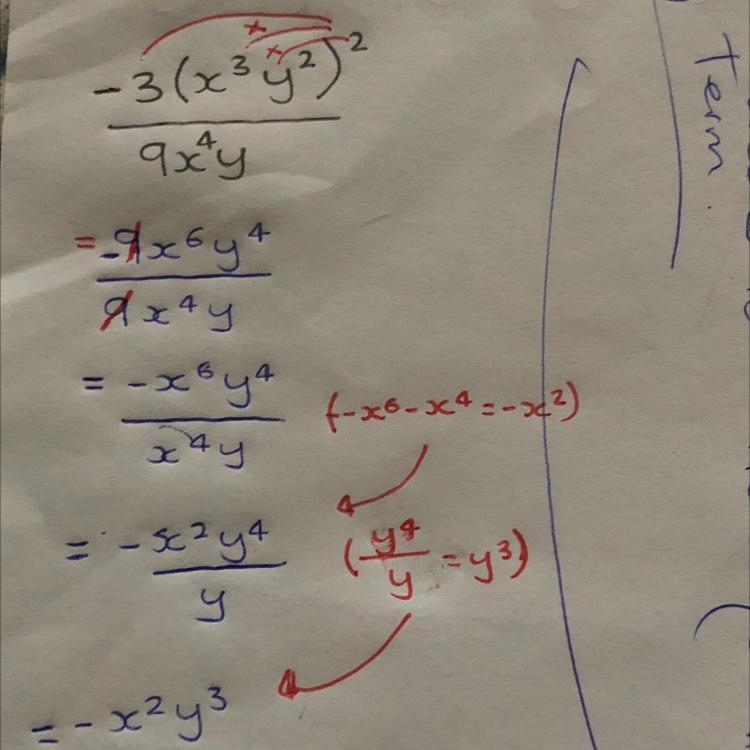 -3(x³y²)²
9x⁴y
= -9x⁶y⁴
9x⁴y
= -x⁶y⁴
x⁴y
(-x⁶-x⁴=-x²)
= -x²y⁴
y
(y⁴
y
=y³)
= -x²y³
Term.